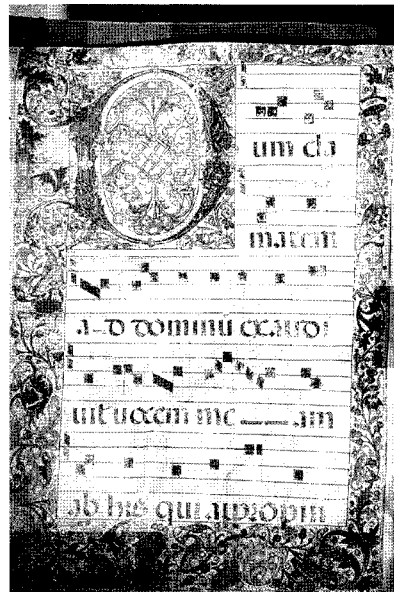 Dum cla
marem
a d dominū exaudi
uit uocem me am
ab his qui appropin